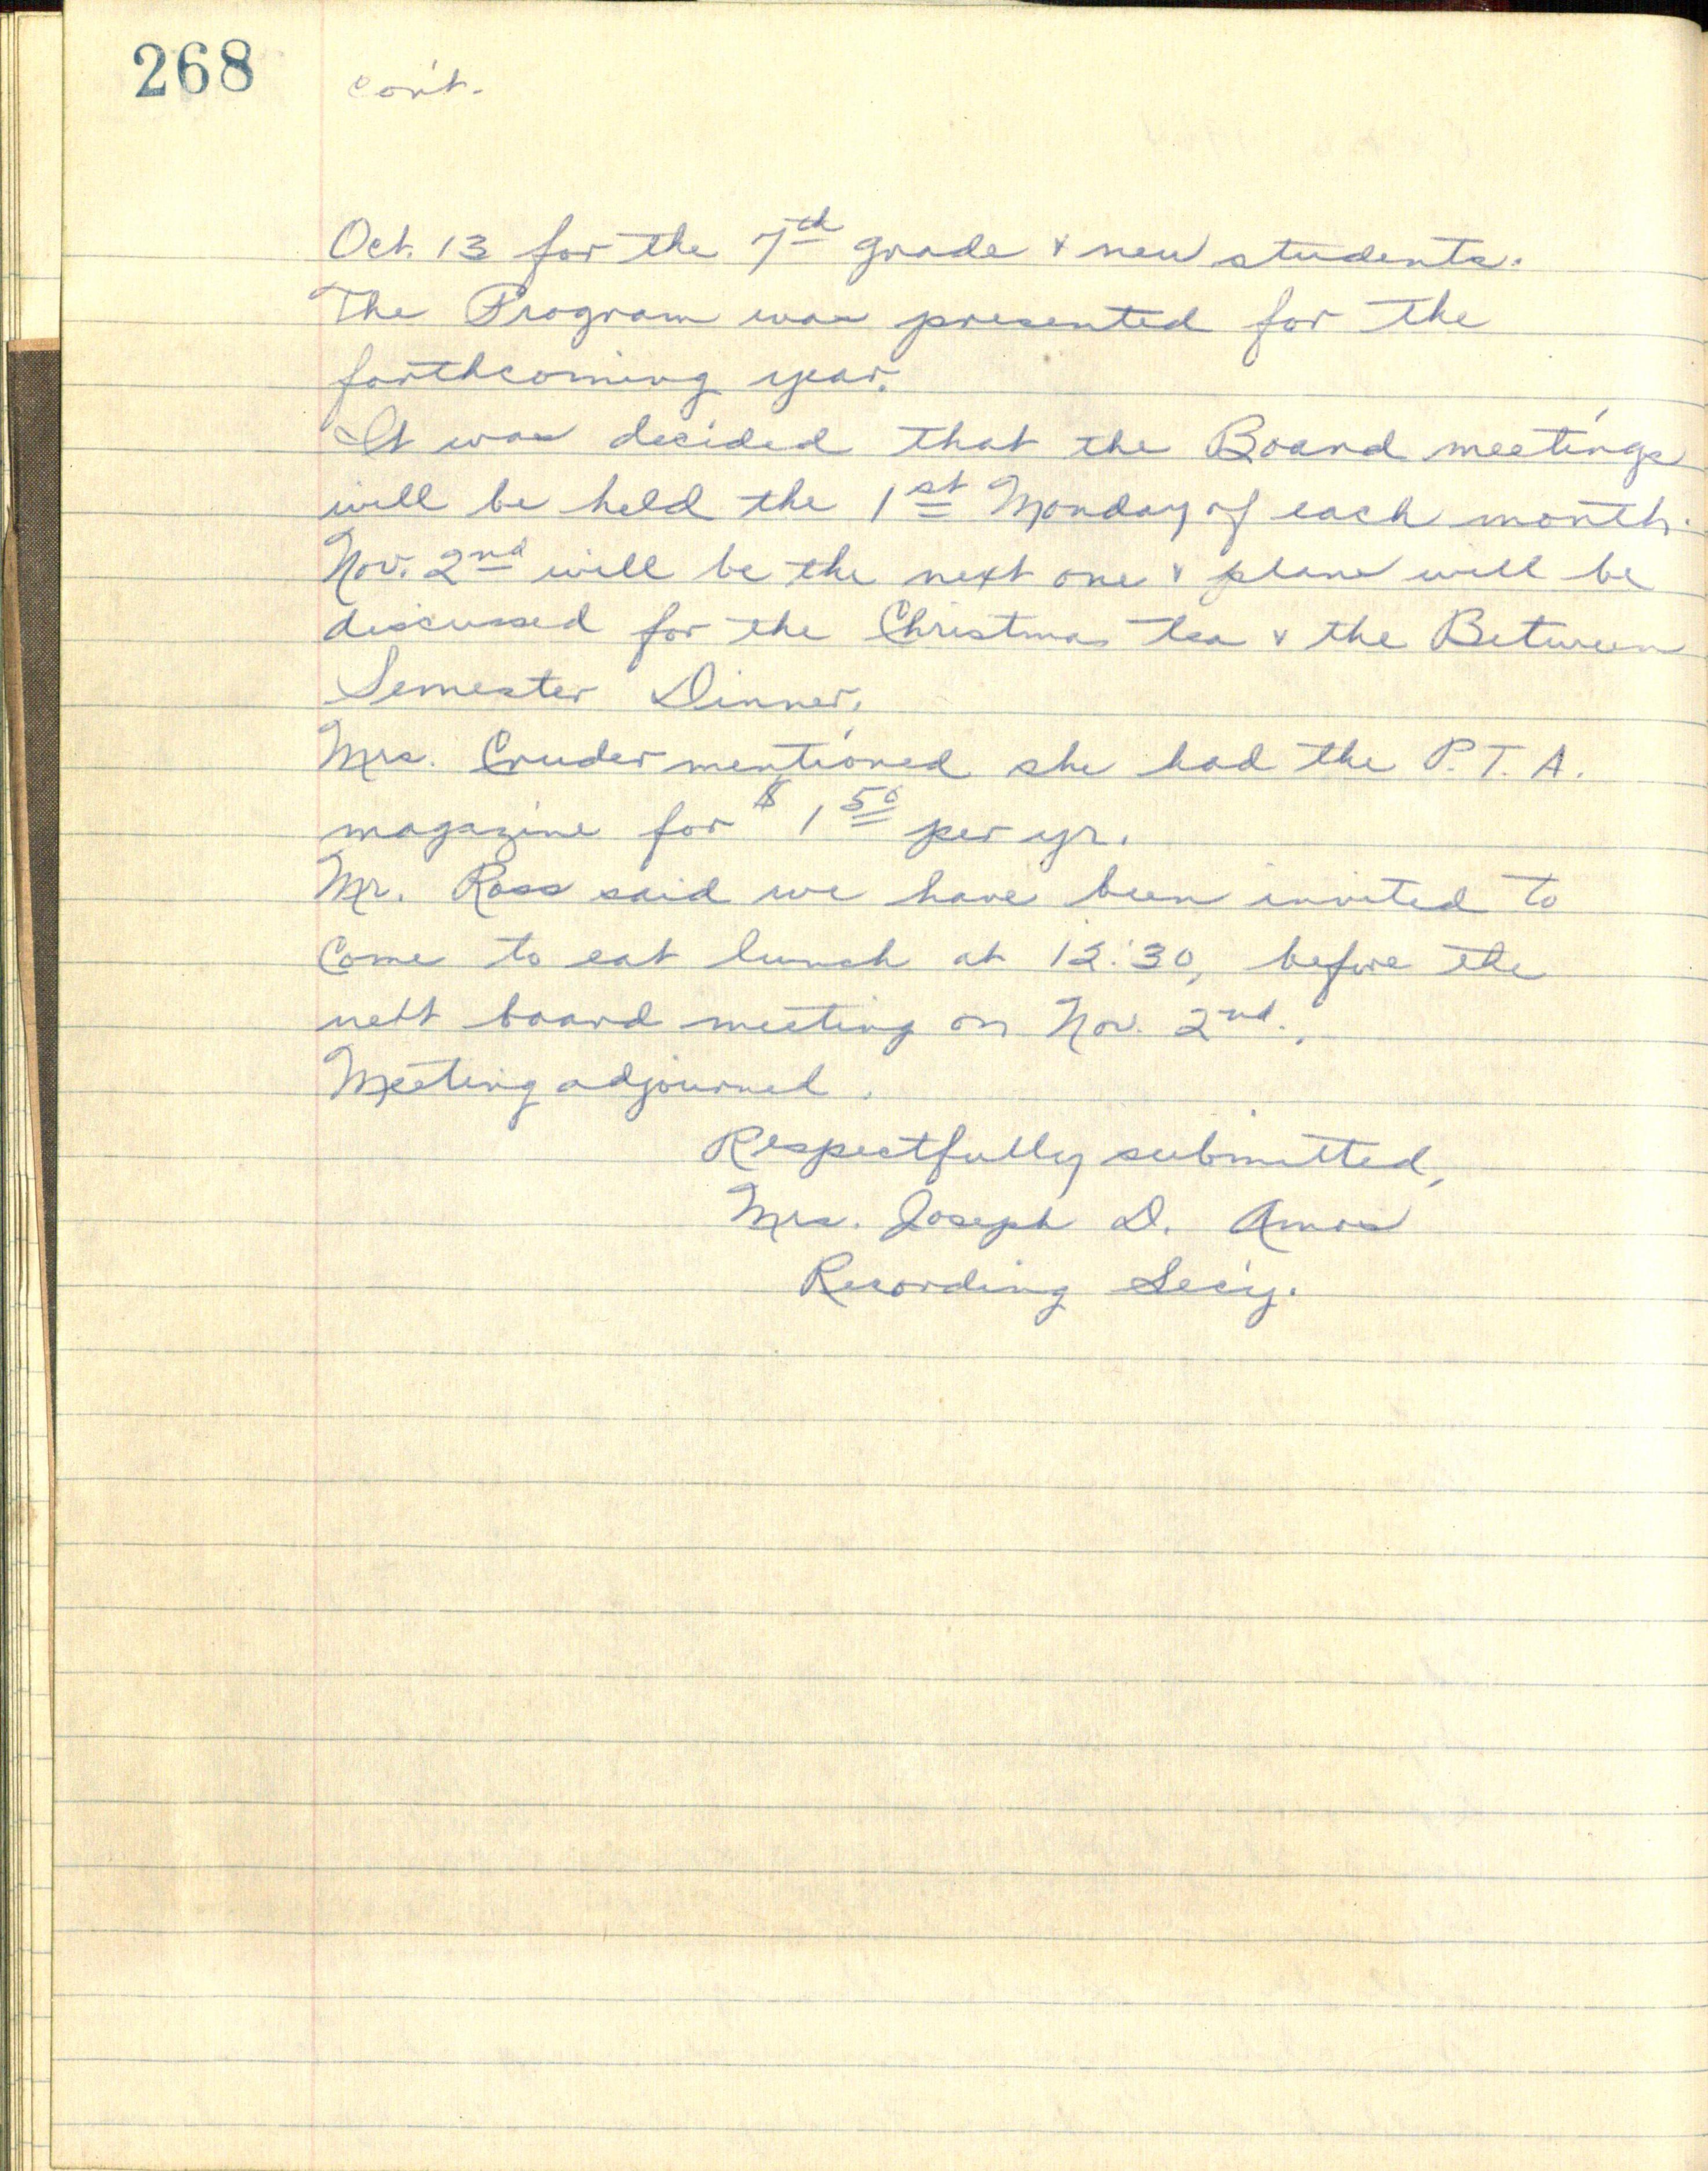 268
con't.
Oct. 13 for the 7th grade & new students.
The Program was presented for the
forthcoming year.
It was decided that the Board meetings
will be held the 1st Monday of each month.
Nov. 2nd will be the next one & plans will be
discussed for the Christmas tea & the Between
Semester Dinner.
Mrs. Cruder mentioned she had the P.T.A.
magazine for $1.50 per yr.
Mr. Ross said we have been invited to
come to eat lunch at 12:30, before the
next board meeting on Nov. 2nd.
Meeting adjourned.
Respectfully submitted,
Mrs. Joseph D. Amos
Recording Sec'y.